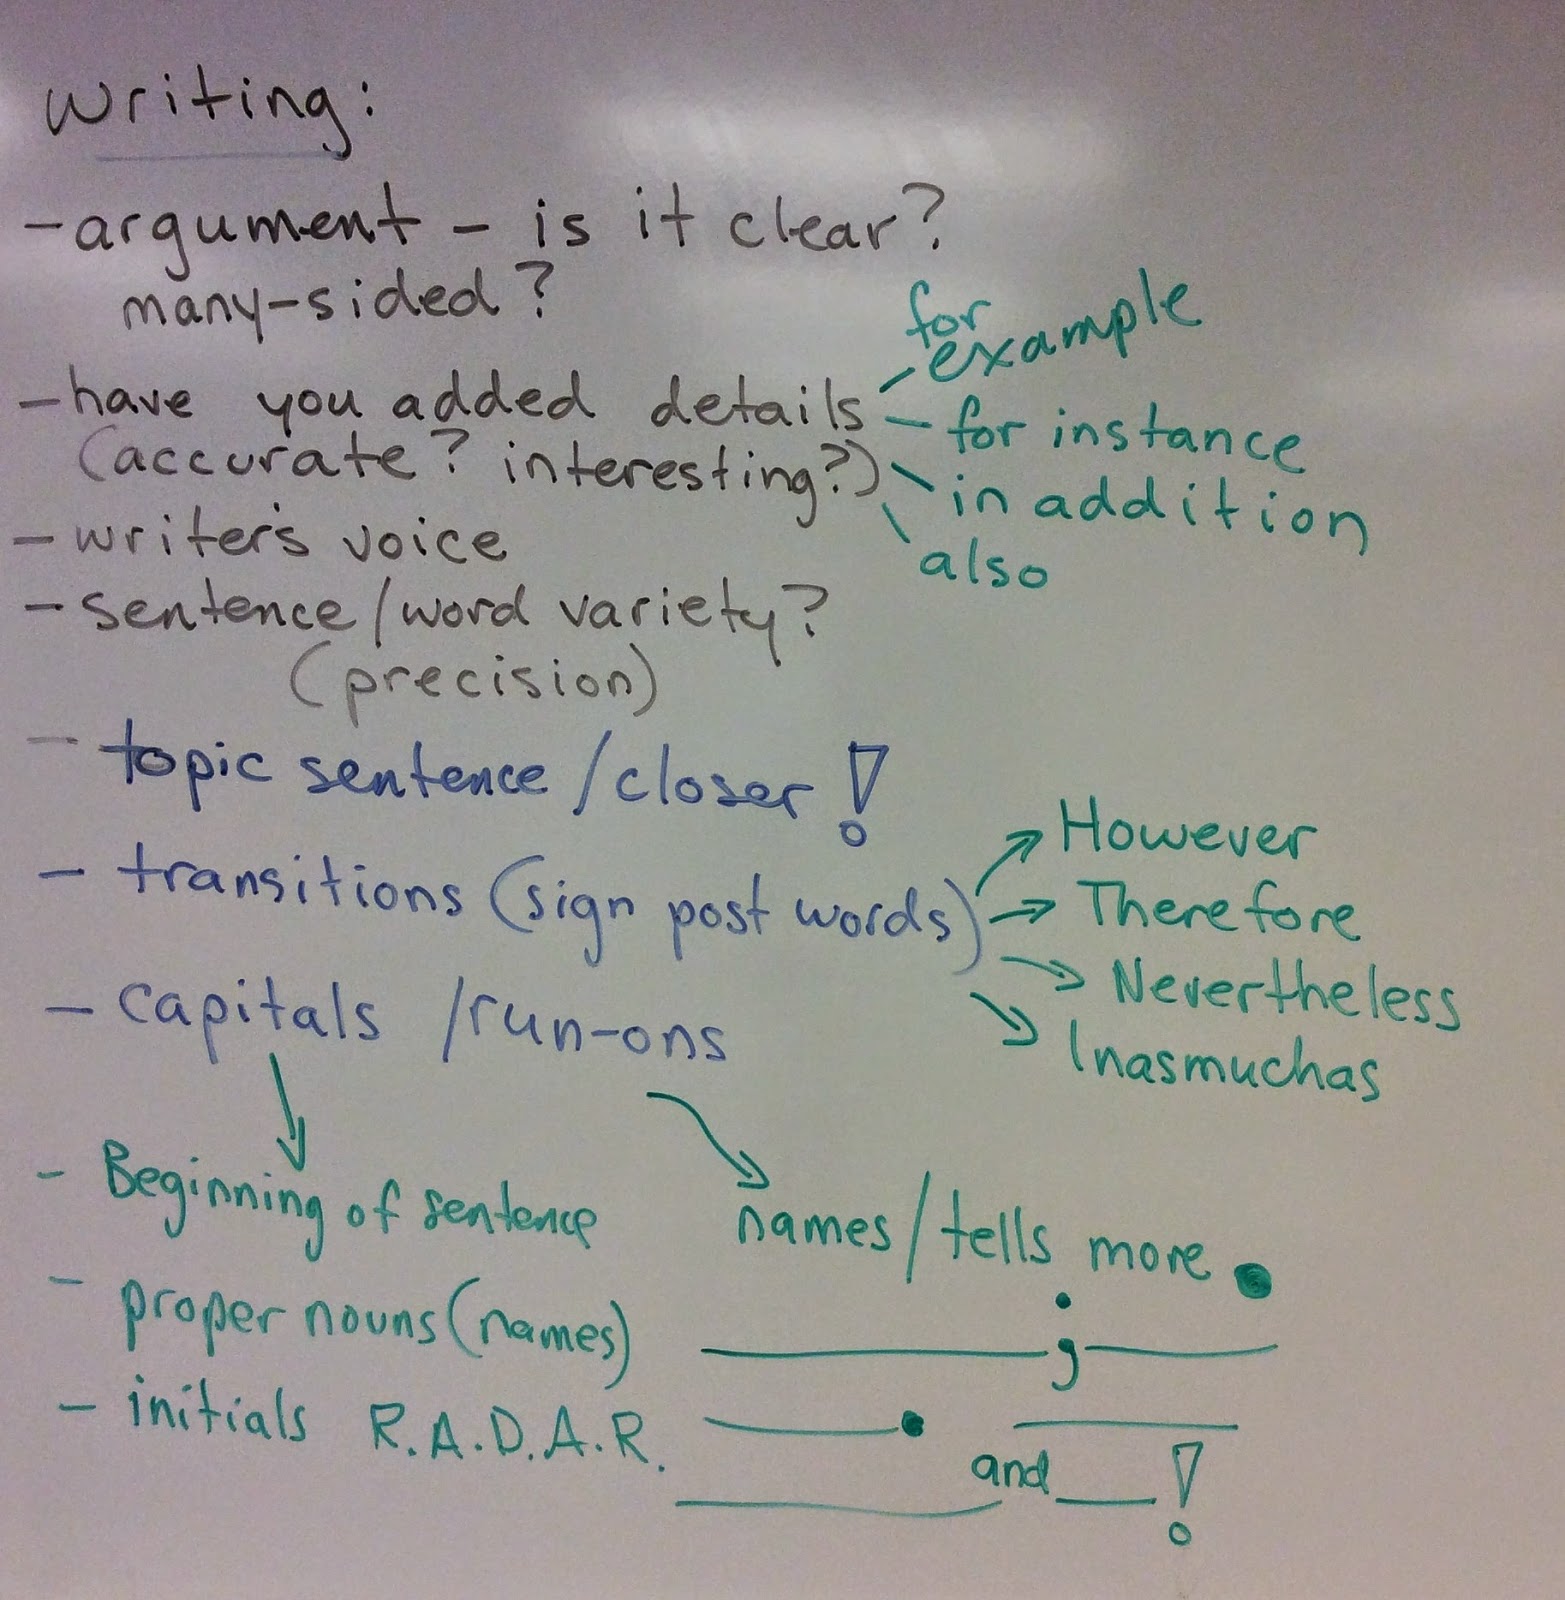 writing:
- argument - is it clear?
many-sided?
- have you added details
(accurate? interesting?)
for
example
for instance
in addition
also
- writer's voice
- sentence/word variety?
(precision)
- topic sentence/closer!
- transitions (sign post words)
However
Therefore
Nevertheless
Inasmuchas
- capitals /run-ons
- Beginning of sentence
- proper nouns (names)
- initials R.A.D.A.R.
names/tells more.
;
.
and !